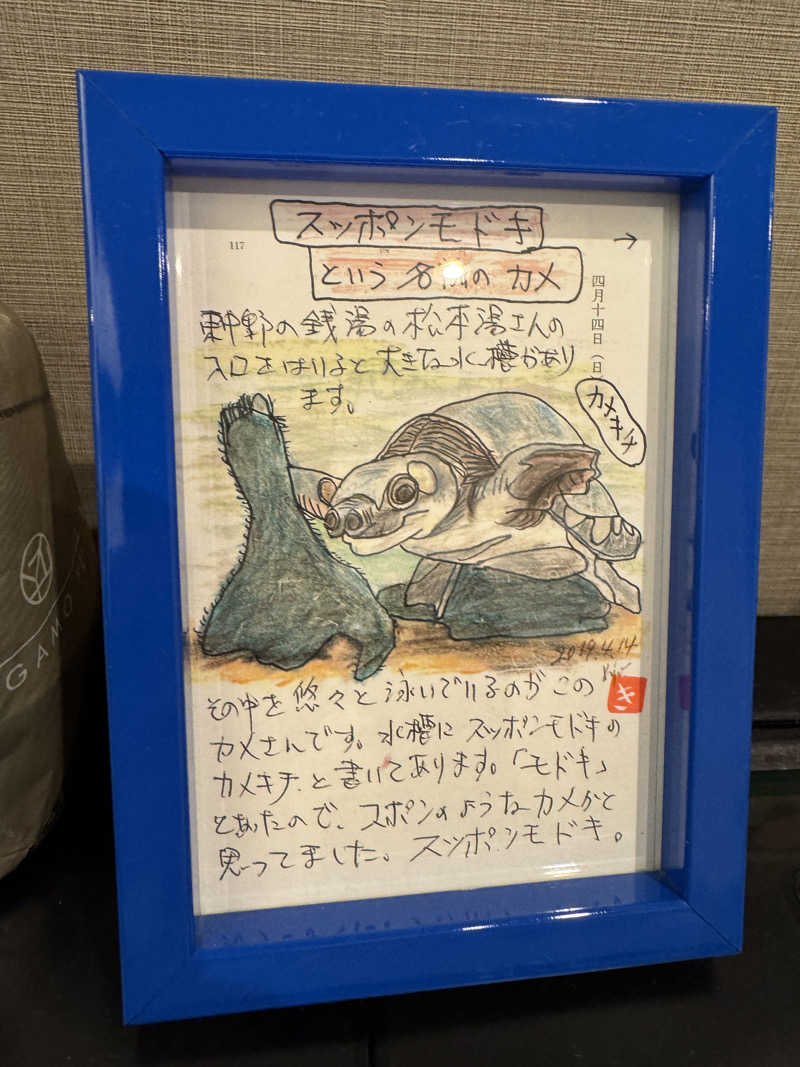 スッポンモドキ
という名前のカメ
117
→
四月十四日(日)
東中野の銭湯の松本湯さんの
入口をはいると大きな水槽があり
ます。
カメキチ
2019.4.14
き
その中を悠々と泳いでいるのがこの
カメさんです。水槽にスッポンモドキの
カメキチと書いてあります。「モドキ」
とあったので、スポンのようなカメかと
思ってました。スッポンモドキ。
GAMO